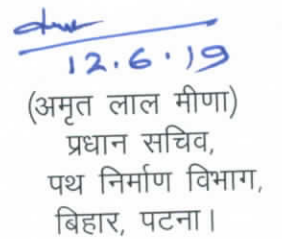 12.6.19
(अमृत लाल मीणा)
प्रधान सचिव,
पथ निर्माण विभाग,
बिहार, पटना।